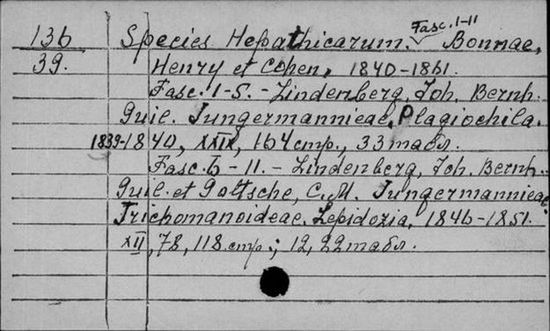 Fasc. 1-11
136 Species Hepathicarum. Bonnae,
39. Henry et Cohen, 1840-1861.
Fasc. 1-5. - Lindenberg, Joh. Bernh.
Guil. Jungermannieae. Plagiochila.
1839-1840, XXIX, 164 стр., 33 табл.
Fasc. 6-11. - Lindenberg, Joh. Bernh.
Guil. et Gottsche, C.M. Jungermannieae.
Trichomanoideae. Lepidozia, 1846-1851.
XII, 78, 118 стр.; 12, 22 табл.